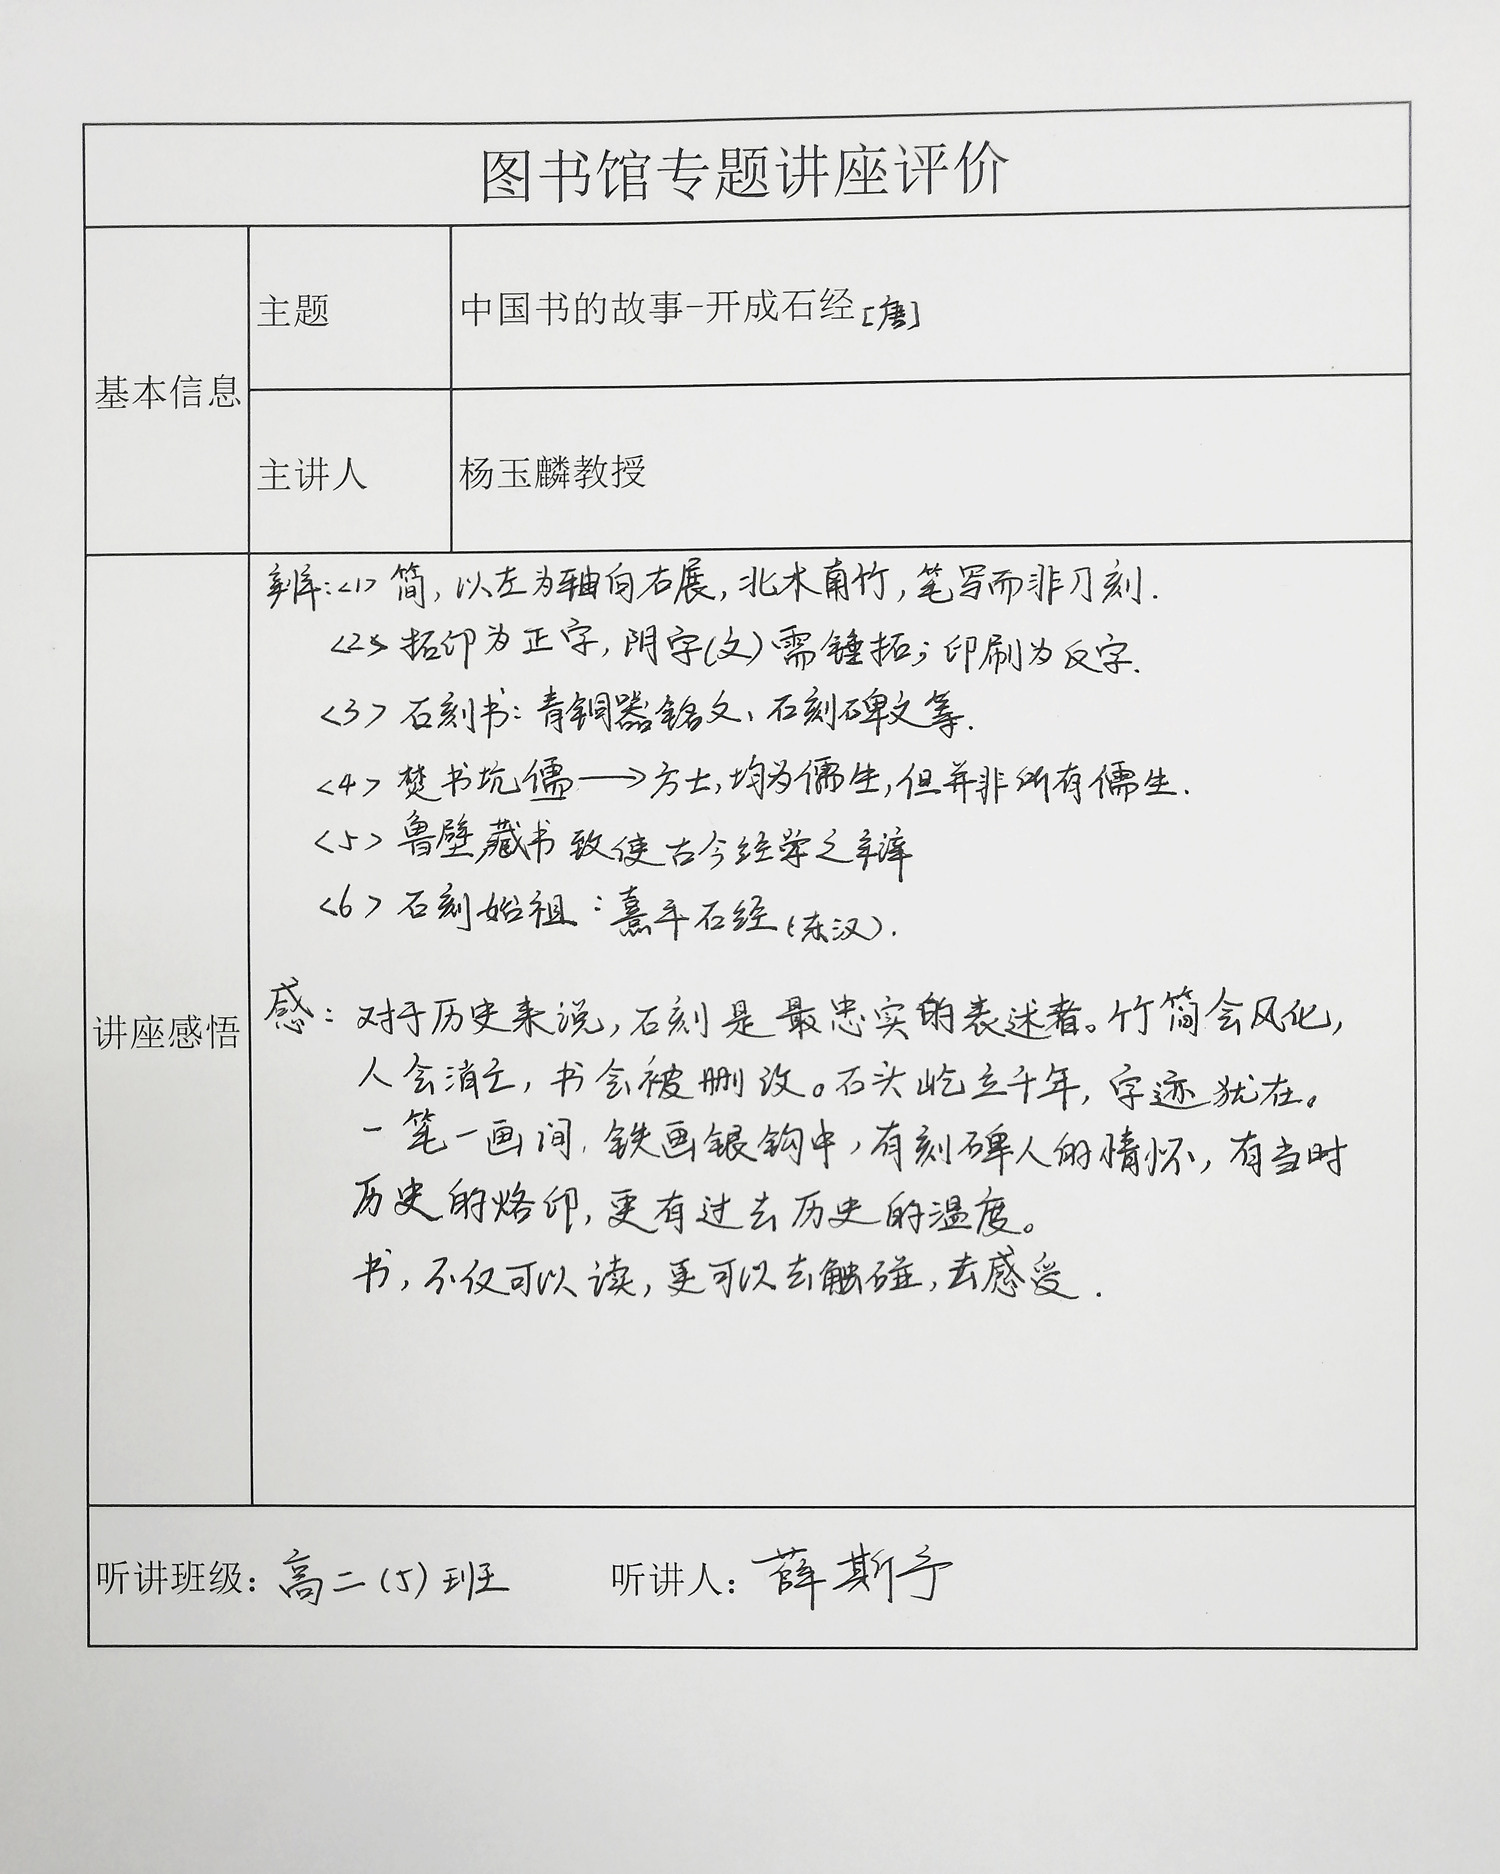 图书馆专题讲座评价
基本信息
主题
中国书的故事-开成石经[唐]
主讲人
杨玉麟教授
讲座感悟
辨:<1> 简,以左为轴向右展,北木南竹,笔写而非刀刻.
<2> 拓印为正字,阴字(文)需锤拓;印刷为反字.
<3> 石刻书:青铜器铭文、石刻碑文等.
<4> 焚书坑儒→方士,均为儒生,但并非所有儒生.
<5> 鲁壁藏书致使古今经学之辩
<6> 石刻始祖:熹平石经(东汉).
感:对于历史来说,石刻是最忠实的表述者。竹简会风化,
人会消亡,书会被删改。石头屹立千年,字迹犹在。
一笔一画间,铁画银钩中,有刻碑人的情怀,有当时
历史的烙印,更有过去历史的温度。
书,不仅可以读,更可以去触碰,去感受.
听讲班级:高二(5)班 听讲人:薛斯予